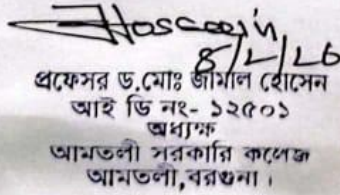 Hossain
8/2/26
প্রফেসর ড.মোঃ জামাল হোসেন
আই ডি নং- ১২৫০১
অধ্যক্ষ
আমতলী সরকারি কলেজ
আমতলী,বরগুনা।